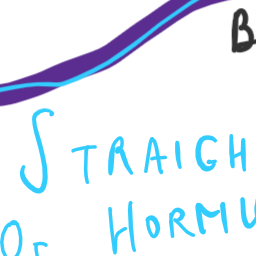 B
STRAIGH
OF HORMU